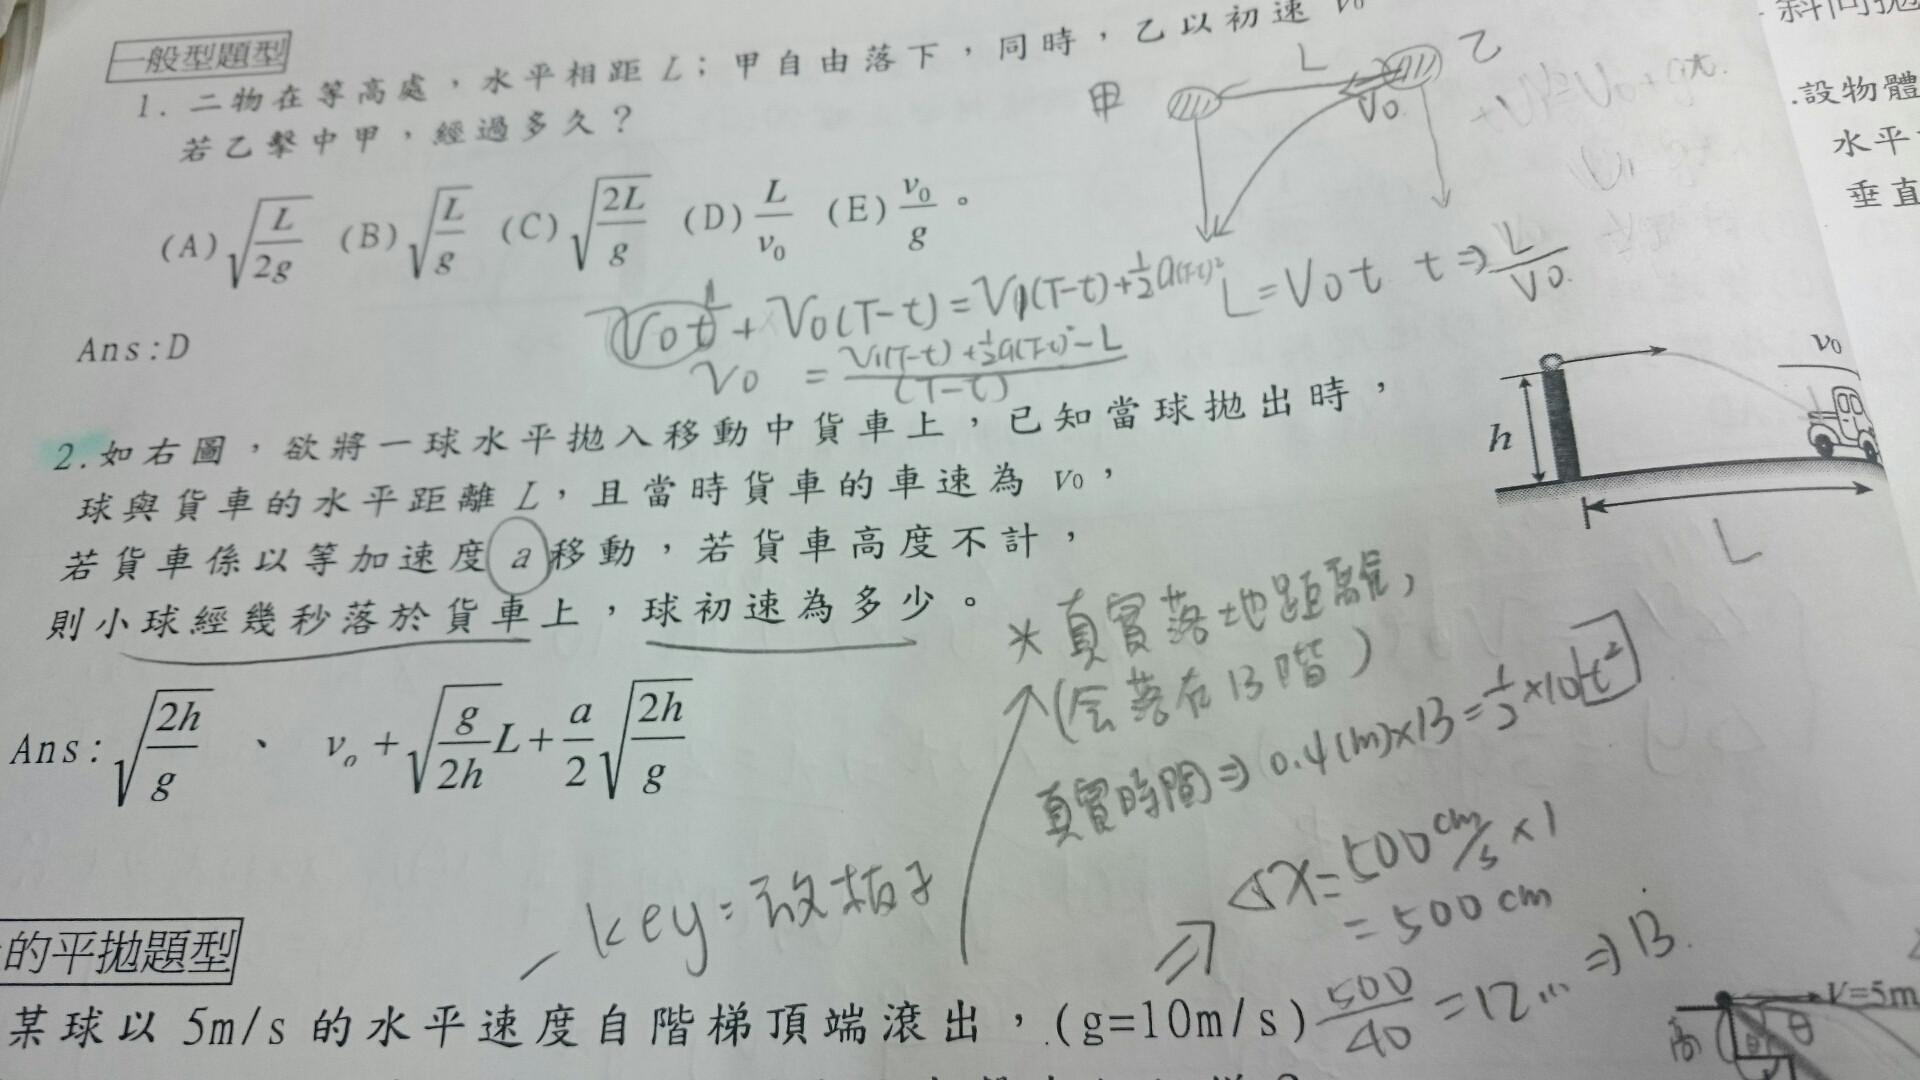 一般型題型
1. 二物在等高處，水平相距 L；甲自由落下，同時，乙以初速 v0
若乙擊中甲，經過多久？
甲 L V0 乙
(A)√(L/2g) (B)√(L/g) (C)√(2L/g) (D) L/v0 (E) v0/g 。
Ans:D
V0t + V0(T-t) = V1(T-t) + 1/2 a(T-t)²
V0 = (V1(T-t) + 1/2 a(T-t)² - L)/(T-t)
L = V0t t ⇒ L/V0
2. 如右圖，欲將一球水平拋入移動中貨車上，已知當球拋出時，
球與貨車的水平距離 L，且當時貨車的車速為 v0，
若貨車係以等加速度 a 移動，若貨車高度不計，
則小球經幾秒落於貨車上，球初速為多少。
h v0 L
Ans: √(2h/g) 、 vo + √(g/2h) L + a/2 √(2h/g)
* 真實落地距離，
(会落在13階)
真實時間 ⇒ 0.4(m)×13 = 1/2 ×10 t²
△X = 500 cm/s ×1
= 500 cm
500/40 = 12... ⇒ 13.
key = 放板子
的平拋題型
某球以 5m/s 的水平速度自階梯頂端滾出，(g=10m/s)
V=5m
高 θ
斜向拋
.設物體
水平
垂直